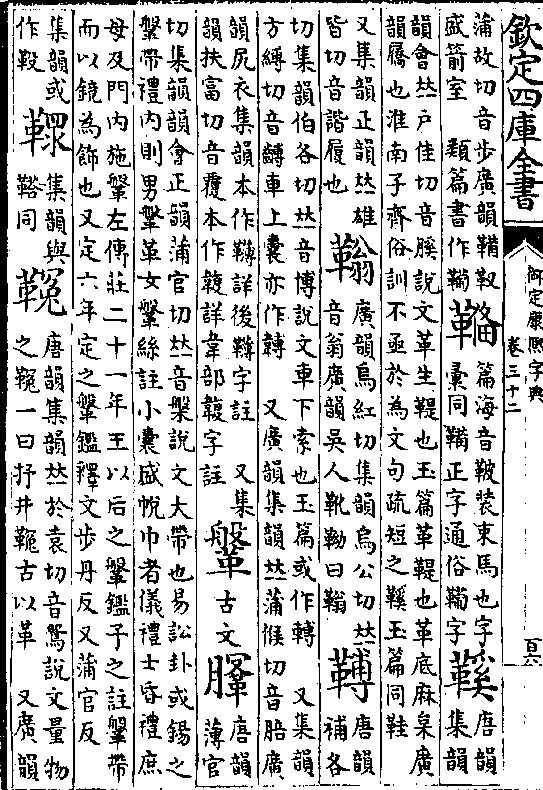 欽定四庫全書
御定康熙字典
卷三十二
百六
蒲故切音步廣韻鞴靫
盛箭室 類篇書作
篇海音鞁裝束馬也字
彚同鞴正字通俗鞴字
鞵
唐韻
集韻
韻會𠀤戶佳切音膎說文革生鞮也玉篇革鞮也革底麻枲廣
韻屩也淮南子齊俗訓不亟於為文句疏短之鞵玉篇同鞋
又集韻正韻𠀤雄
皆切音諧履也
廣韻烏紅切集韻烏公切𠀤
音翁廣韻吳人靴靿曰
唐韻
補各
切集韻伯各切𠀤音博說文車下索也玉篇或作 又集韻
方縛切音車上囊亦作 又廣韻集韻𠀤蒲候切音廣
韻尻衣集韻本作詳後字註 又集
韻扶富切音覆本作詳韋部字註
鞶
古文
唐韻
薄官
切集韻韻會正韻蒲官切𠀤音槃說文大帶也易訟卦或錫之
鞶帶禮內則男鞶革女鞶絲註小囊盛帨巾者儀禮士昏禮庶
母及門內施鞶左傳莊二十一年王以后之鞶鑑予之註鞶帶
而以鏡為飾也又定六年定之鞶鑑釋文步丹反又蒲官反
集韻或
作
集韻與
同
唐韻集韻𠀤於袁切音鴛說文量物
之一曰抒井古以革 又廣韻